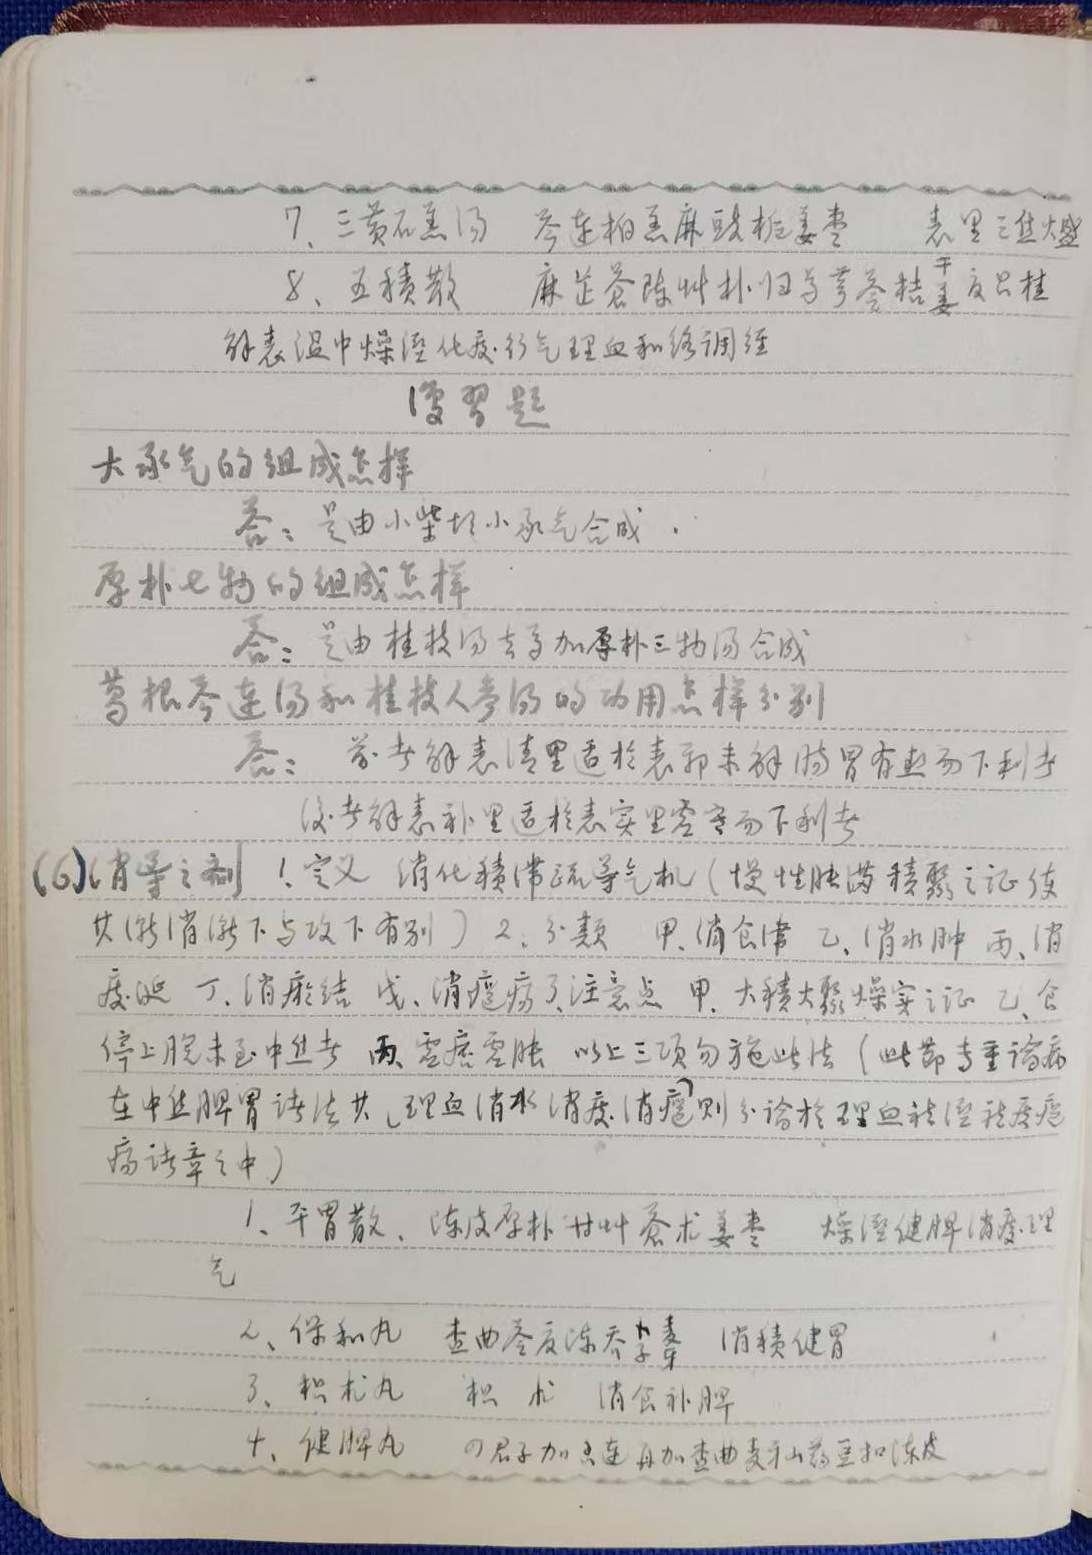 7、三黄石羔汤 芩连柏羔麻豉栀姜枣 表里三焦火盛
8、五積散 麻芷蒼陈艸朴归芍芎苓桔干姜夏只桂
解表温中燥溼化痰行气理血和络调经
復習題
大承气的组成怎样
答：是由小柴胡小承气合成．
厚朴七物的组成怎样
答：是由桂枝汤去芍加厚朴三物汤合成
葛根芩连汤和桂枝人参汤的功用怎样分别
答： 前者解表清里适於表邪未解肠胃有热而下利者
後者解表补里适於表实里虚寒而下利者
(6)消导之剂 1.定义 消化積滞疏导气机（慢性胀满積聚之证使
其渐消渐下与攻下有别）2、分類 甲、消食滞 乙、消水肿 丙、消
痰涎 丁、消瘀结 戊、消瘟疡 3、注意点 甲、大積大聚燥实之证 乙、食
停上脘未至中焦者 丙、虚痞虚胀 以上三项勿施此法（此節专重诊病
在中焦脾胃诸法其理血消水消痰消 则分论於理血祛溼祛痰
疡诸章之中）
1、平胃散、陈皮厚朴甘艸蒼术姜枣 燥溼健脾消痰理
气
2、保和丸 查曲苓夏陈乔卜子麦芽 消積健胃
3、枳术丸 枳 术 消食补脾
4、健脾丸 四君子加 连再加查曲麦牙山药豆扣陈皮